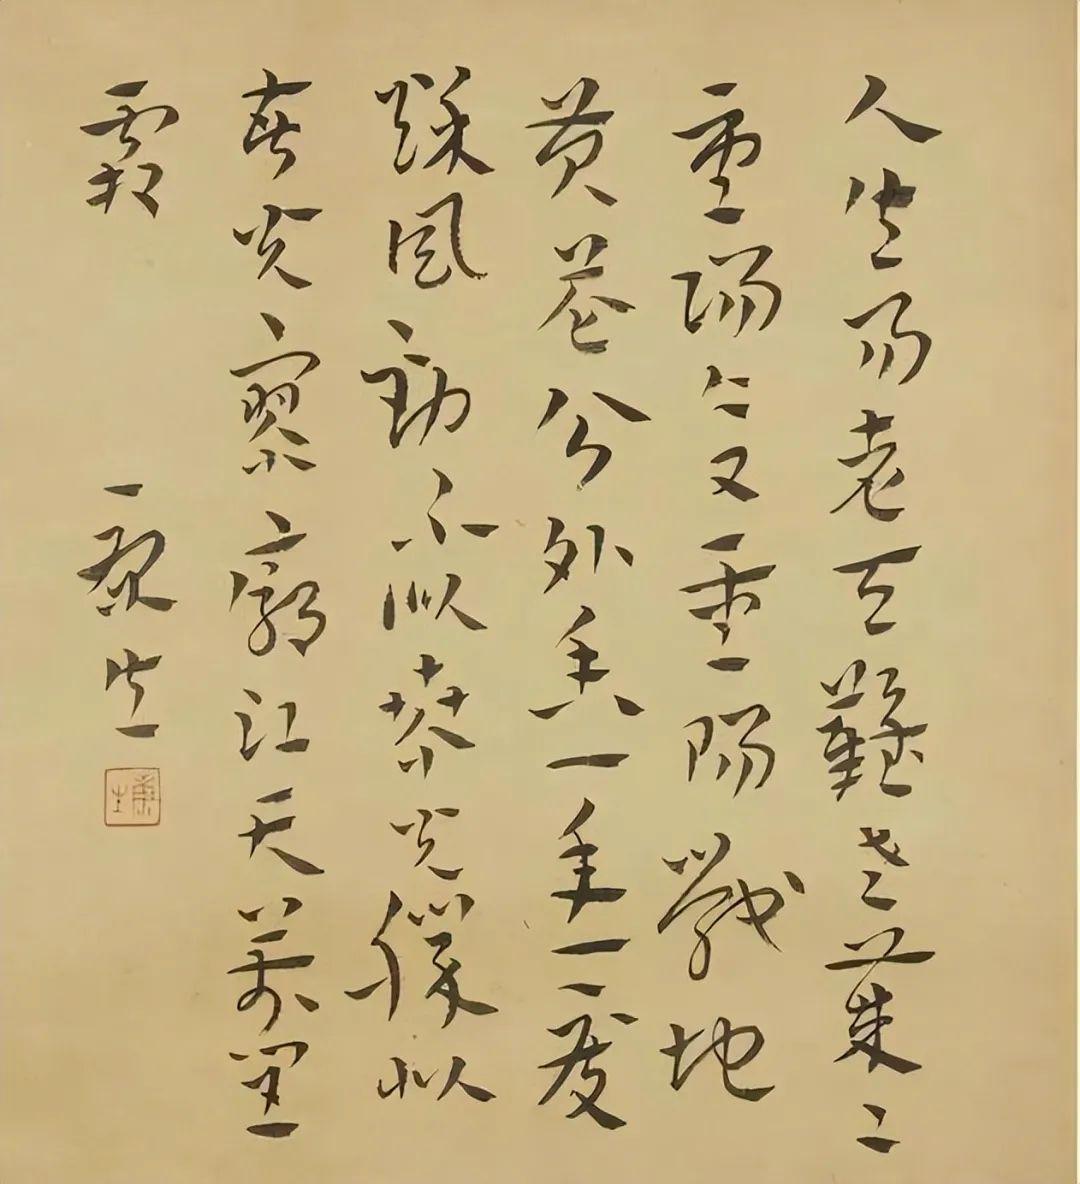 人生易老天難老歲〻
重陽今又重陽戰地
黄花分外香一年一度
秋風勁不似春光勝似
春光寥廓江天萬里
霜